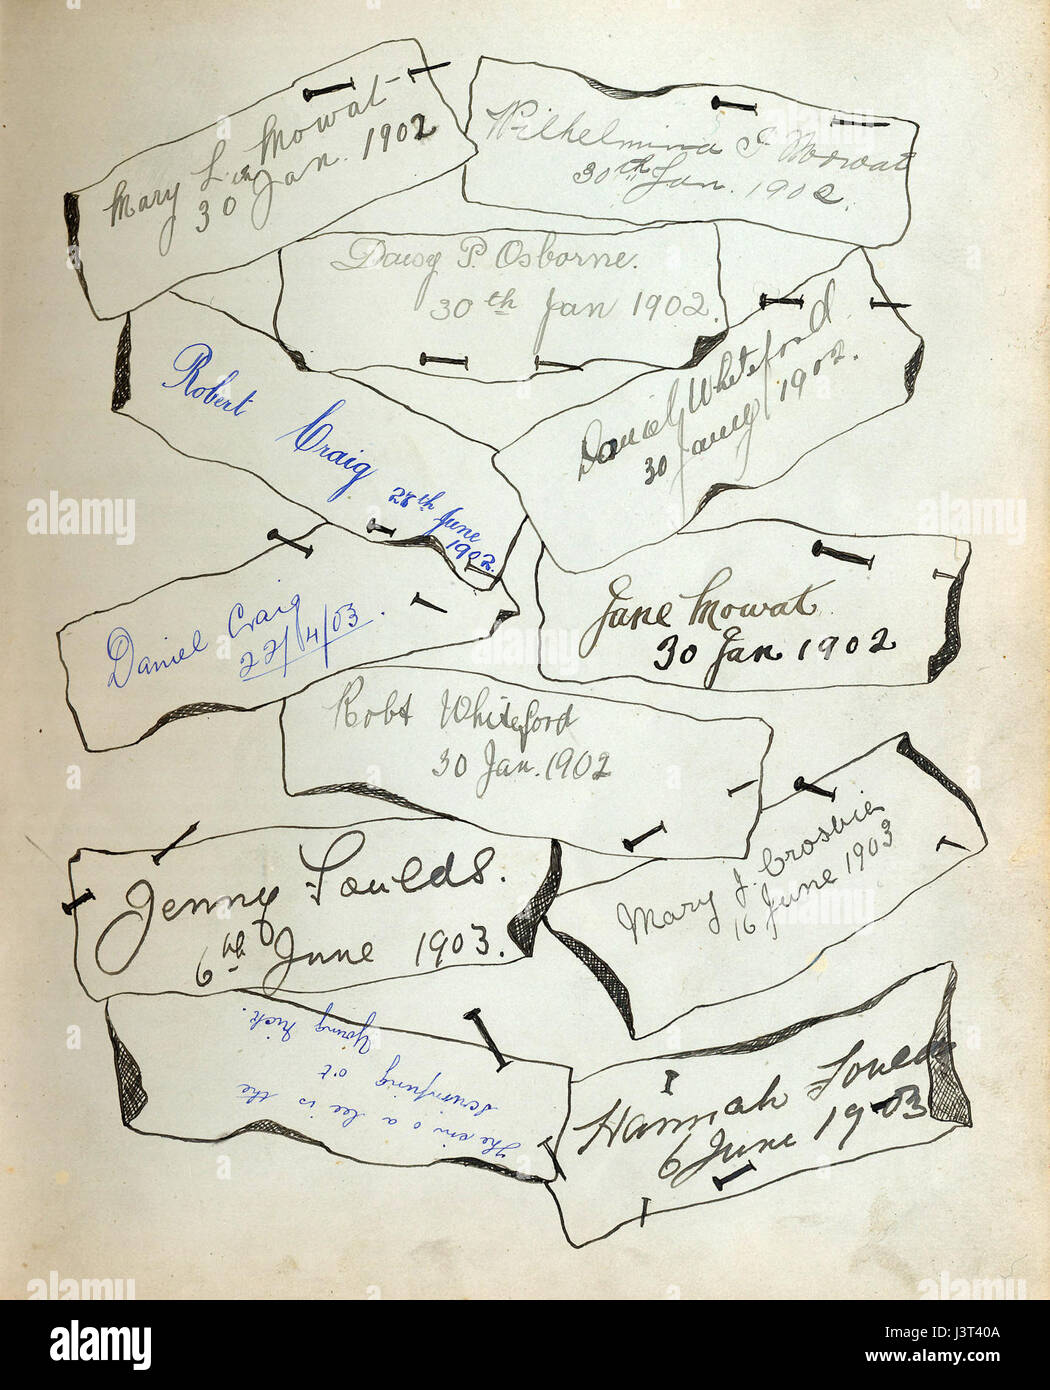 Mary L. Mowat
30 Jan. 1902
Wilhelmina J Mowat
30th Jan. 1902.
Daisy P. Osborne.
30th Jan 1902.
Robert Craig
28th June
1902.
Daniel Whiteford
30 Jany 1902.
Daniel Craig
22/4/03.
Jane Mowat
30 Jan 1902
Robt Whiteford
30 Jan. 1902
Jenny Foulds.
6th June 1903.
Mary J. Crosbie
16 June 1903
is the
Young Nick.
Hannah Foulds
6 June 1903
alamy
alamy
Image ID: J3T40A
www.alamy.com